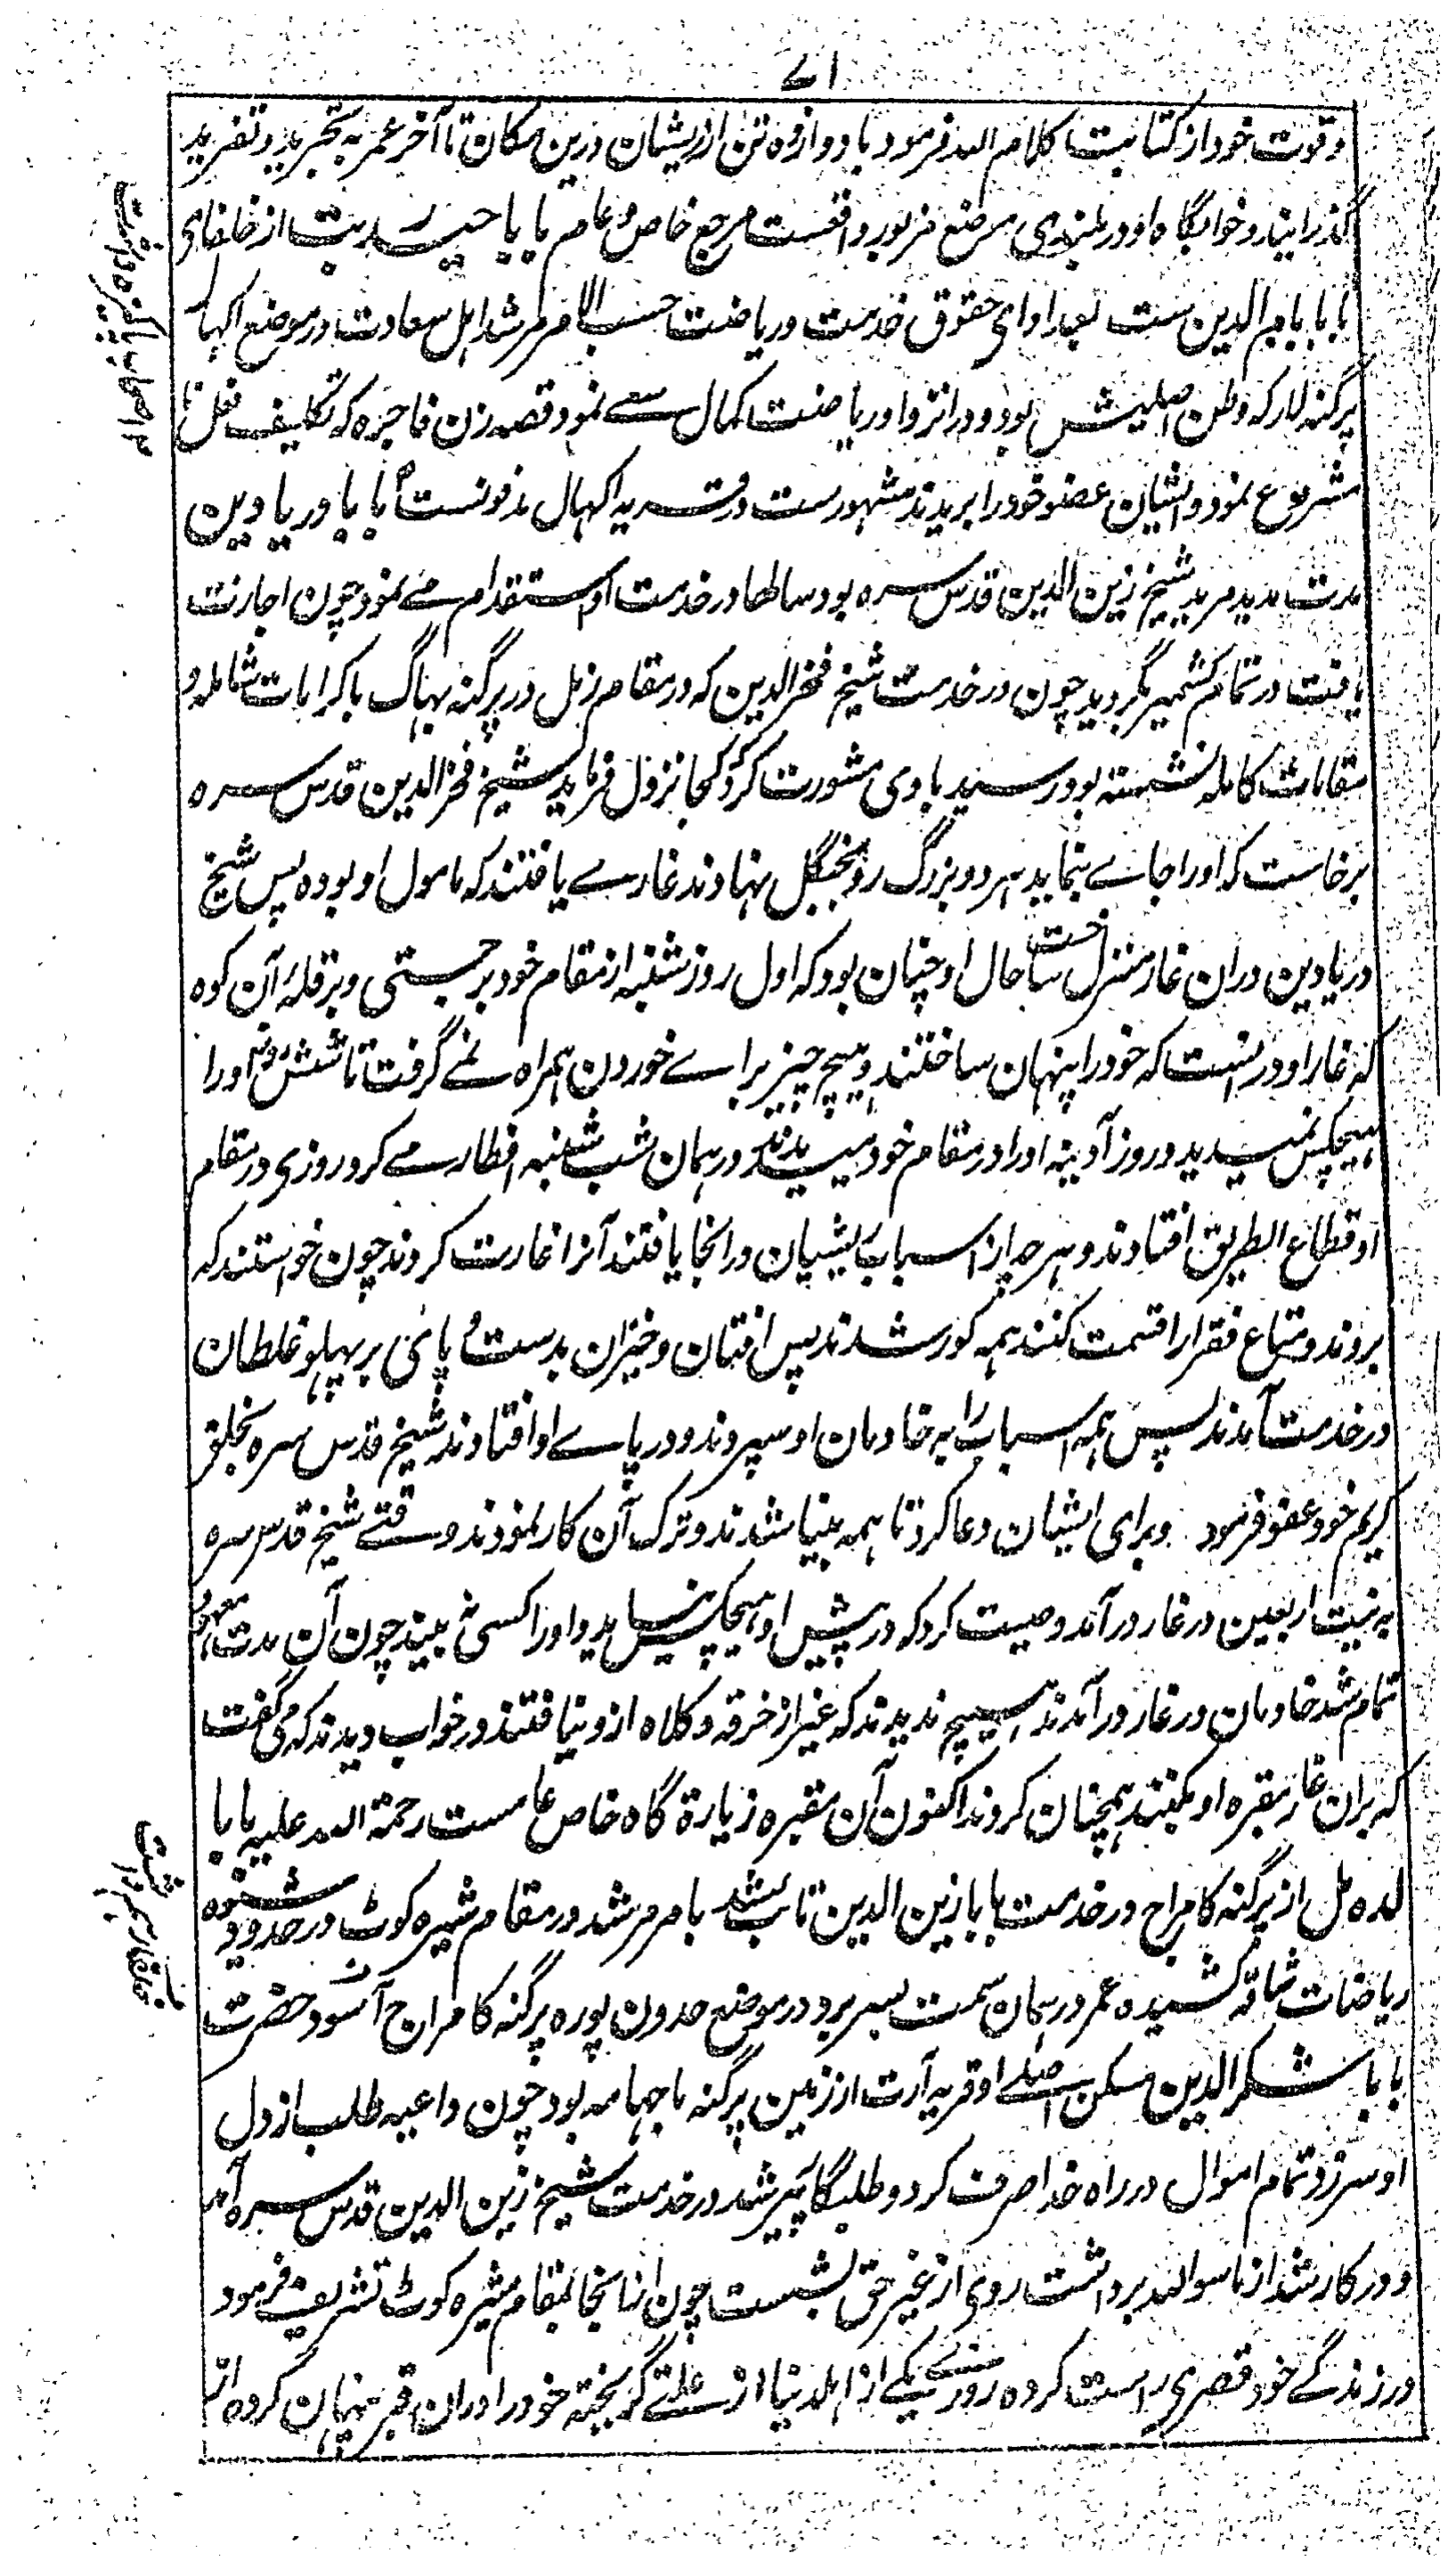 ۷۱
و قوت خود از کتابت کلام الله فرمود با دوازده تن از ریشیان درین مکان تا آخر عمر به تجرید و تفرید
گذرانید و خوابگاه او در بلندی موضع مزبور واقعست مرجع خاص و عام بابا حیدر از خلفای
بابا بام الدین ست بعد ادای حقوق خدمت و ریاضت حسب الامر مرشد اهل سعادت در موضع اکهال
پرگنه لار که وطن اصلیش بود و در انزوا و ریاضت کمال سعے نمود قصه زن فاجره که تکلیف فعل نا
مشروع نمود و ایشان عضو خود را بریدند مشهورست در قریه اکهال مدفونست بابا دریا دین
مدت مدید مرید شیخ زین الدین قدس سره بود سالها در خدمت او استقدام مے نمود چون اجازت
یافت در تمام کشمیر بگردید چون در خدمت شیخ فخر الدین که در مقام زمل در پرگنه بهاگ با کرامات شامله و
مقامات کامله نشسته بود رسید با وی مشورت کرد کجا نزول فرماید شیخ فخر الدین قدس سره
برخاست که او را جاے بنماید هر دو بزرگ رو بجنگل نهادند غارے یافتند که مامول او بوده پس شیخ
دریا دین دران غار منزل ساخت حال او چنان بود که اول روز شنبه از مقام خود برجستی و بر قلهٔ آن کوه
که غار او در انست که خود را پنهان ساختند و هیچ چیز براے خوردن همراه نمے گرفت تا شش روز او را
هیچکس نمیدید و روز آدینه او را در مقام خود میدیدند و در همان شب شنبه افطار مے کرد روزی در مقام
او قطاع الطریق افتادند و هر چه از اسباب ایشان در انجا یافتند آنرا غارت کردند چون خواستند که
بروند و متاع فقرا را قسمت کنند همه کور شدند پس افتان و خیزان بدست و پائی بر پهلو غلطان
در خدمت آمدند پس همه اسباب را به خادمان او سپردند و در پاے او افتادند شیخ قدس سره بخلق
کریم خود عفو فرمود و برای ایشان دعا کرد تا همه بینا شدند و ترک آن کار نمودند وقتے شیخ قدس سره
به نیت اربعین در غار در آمد وصیت کرد که در پیش او هیچکس نیاید و او را کسی نه بیند چون آن مدت معهود
تمام شد خادمان در غار در آمدند هیچ ندیدند که غیر از خرقه و کلاه ازو نیافتند در خواب دیدند که می گفت
که بران غار مقبره او بکنند همچنان کردند اکنون آن مقبره زیارة گاه خاص عامست رحمة الله علیه بابا
لده مل از پرگنه کامراج در خدمت بابا زین الدین تائب شد با مر مرشد در مقام شیره کوٹ در حدود
ریاضات شاقه کشیده عمر در همان سمت بسر برد در موضع حدون پوره پرگنه کامراج آسود حضرت
بابا شکر الدین مسکن اصلے او قریه آرت از زمین پرگنه ماچهامه بود چون داعیه طلب از دل
او سر زد تمام اموال در راه خدا صرف کرد و طلبگار پیر شد در خدمت شیخ زین الدین قدس سره آمد
و در کار شد از ماسوا الله برداشت روی از غیر حق بشست چون از انجا بمقام شیره کوٹ تشریف فرمود
در زندگے خود قصری راست کرده روزے یکے از اهل دنیا از علتے گریخته خود را دران قبر پنهان کرده